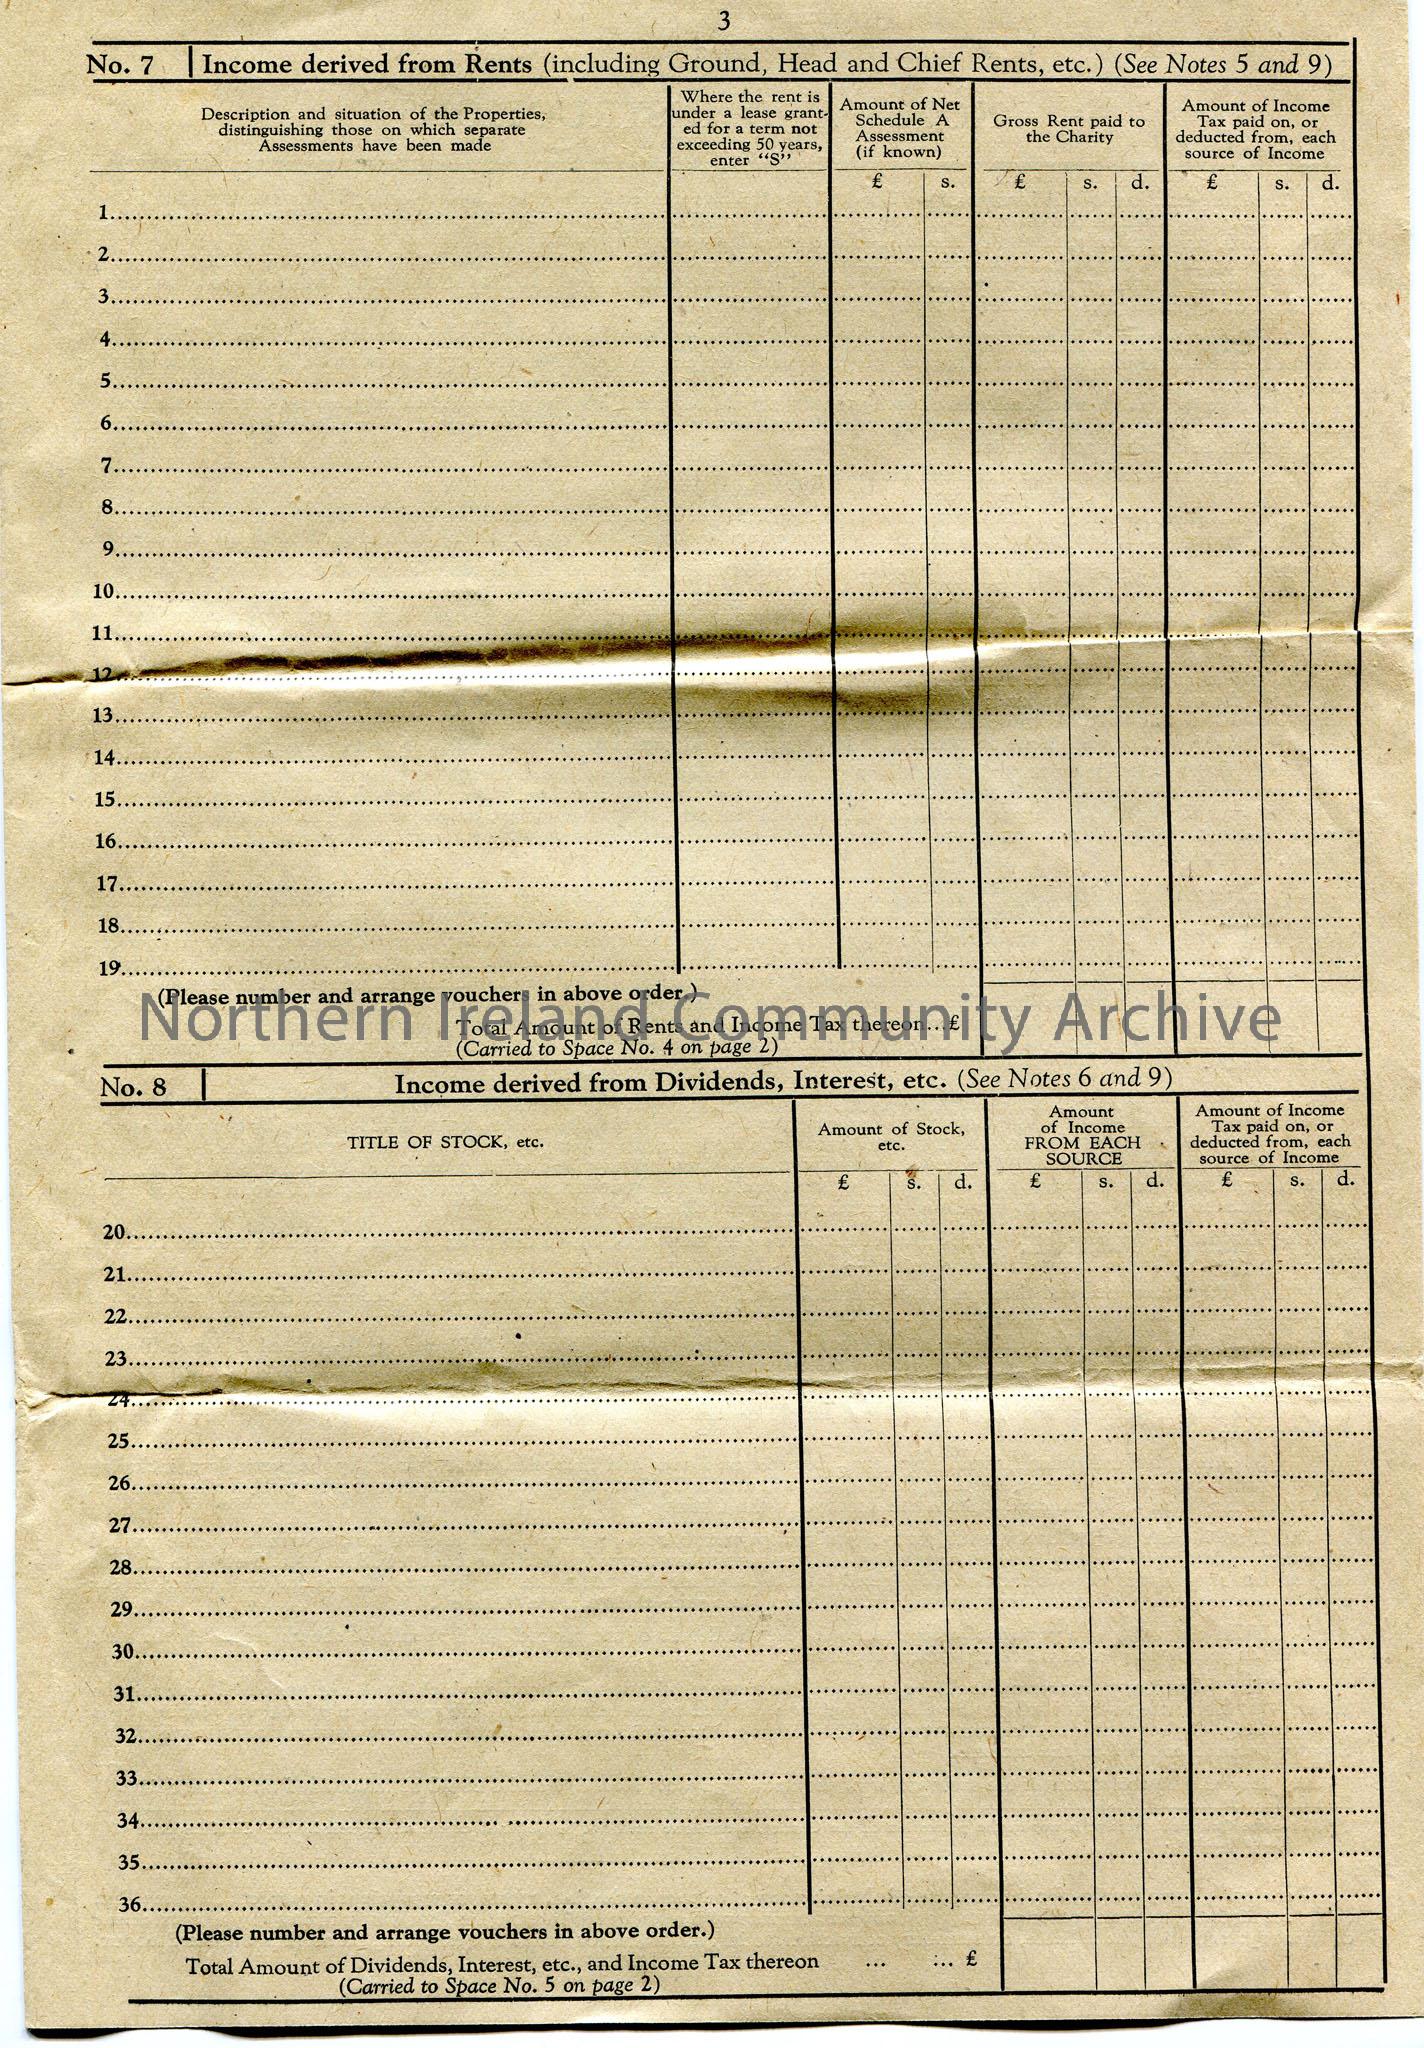 3
No. 7 Income derived from Rents (including Ground, Head and Chief Rents, etc.) (See Notes 5 and 9)
Description and situation of the Properties,
distinguishing those on which separate
Assessments have been made
Where the rent is
under a lease grant-
ed for a term not
exceeding 50 years,
enter "S"
Amount of Net
Schedule A
Assessment
(if known)
Gross Rent paid to
the Charity
Amount of Income
Tax paid on, or
deducted from, each
source of Income
£ s. £ s. d. £ s. d.
1
2
3
4
5
6
7
8
9
10
11
12
13
14
15
16
17
18
19
(Please number and arrange vouchers in above order.)
Northern Ireland Community Archive
Total Amount of Rents and Income Tax thereon...£
(Carried to Space No. 4 on page 2)
No. 8 Income derived from Dividends, Interest, etc. (See Notes 6 and 9)
TITLE OF STOCK, etc.
Amount of Stock,
etc.
Amount
of Income
FROM EACH
SOURCE
Amount of Income
Tax paid on, or
deducted from, each
source of Income
£ s. d. £ s. d. £ s. d.
20
21
22
23
24
25
26
27
28
29
30
31
32
33
34
35
36
(Please number and arrange vouchers in above order.)
Total Amount of Dividends, Interest, etc., and Income Tax thereon ... ... £
(Carried to Space No. 5 on page 2)